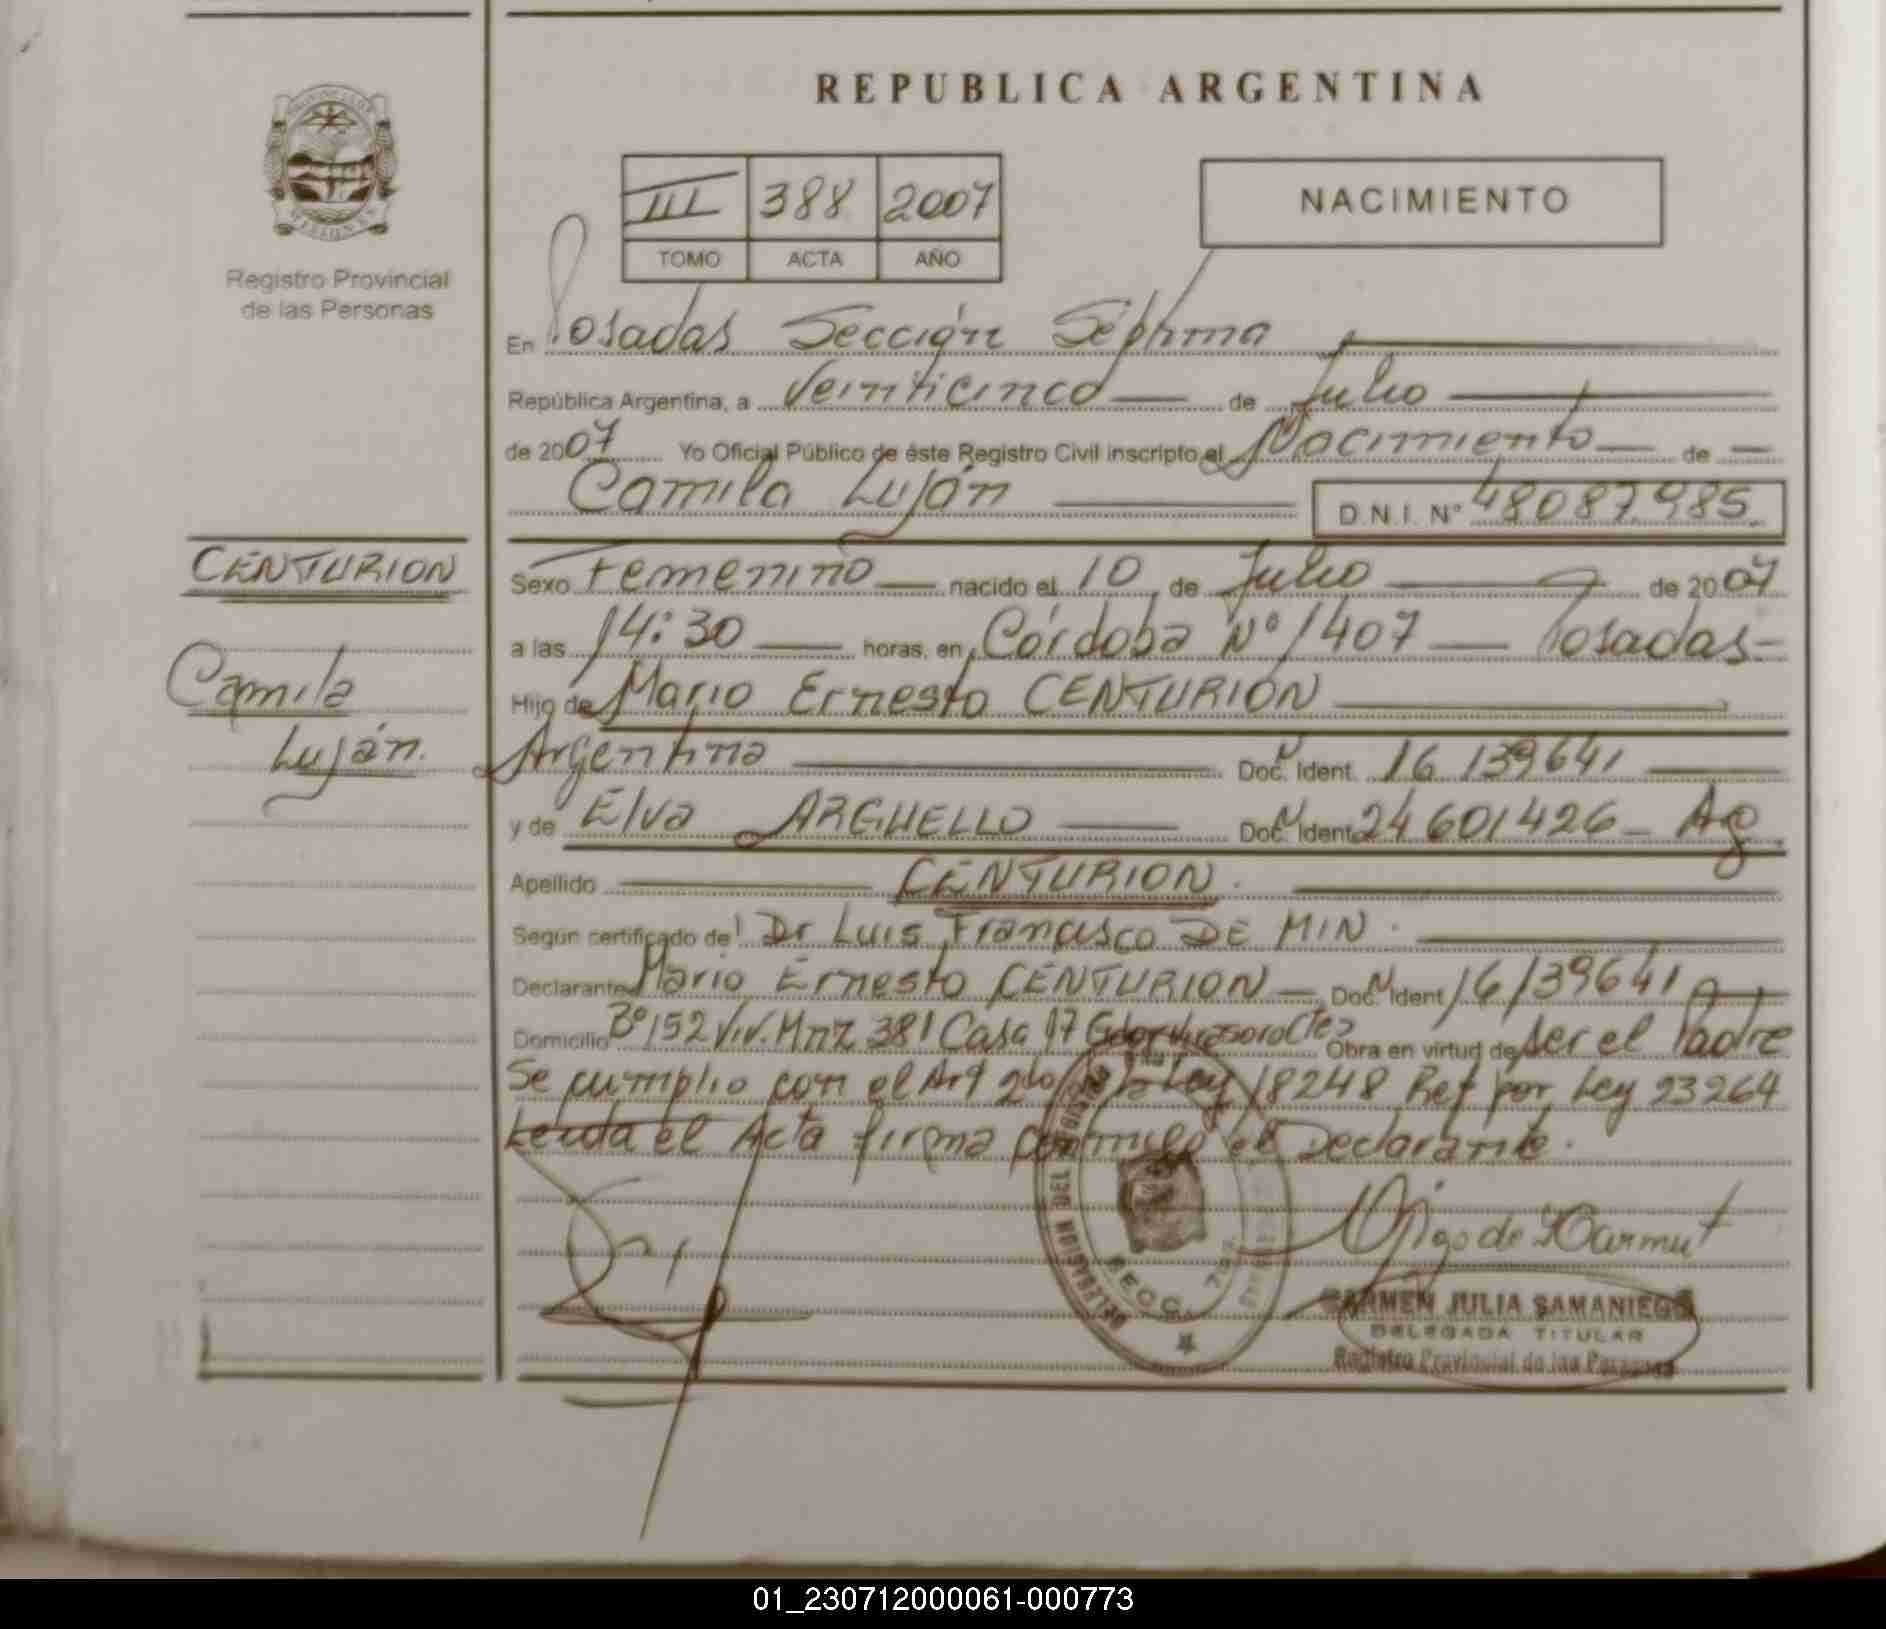 REPUBLICA ARGENTINA
III 388 2007
TOMO ACTA AÑO
NACIMIENTO
Registro Provincial
de las Personas
En Posadas Sección Séptima
República Argentina, a Veinticinco de Julio
de 2007 Yo Oficial Público de éste Registro Civil inscripto el Nacimiento de
Camila Luján D.N.I. N° 48087985
CENTURION
Camila
Luján.
Sexo Femenino nacido el 10 de Julio de 2007
a las 14:30 horas, en Córdoba N° 1407 Posadas-
Hijo de Mario Ernesto CENTURION
Argentina Doc. Ident. 16139641
y de Elva ARGUELLO Doc. Ident. 24601426 Ag
Apellido CENTURION.
Según certificado de Dr Luis Francisco DE MIN.
Declarante Mario Ernesto CENTURION Doc. Ident 16139641
Domicilio B° 152 Viv. Mnz 381 Casa 17 Gdor Virasoro Ctes Obra en virtud de ser el Padre
Se cumplio con el Art 2do de la Ley 18248 Ref por Ley 23264
Leida el Acta firma conmigo el Declarante.
DELEGACION DEL REGISTRO
SECC. 7ma
CARMEN JULIA SAMANIEGO
DELEGADA TITULAR
Registro Provincial de las Personas
01_230712000061-000773